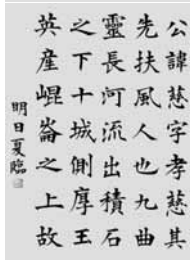 公諱慈字孝慈其
先扶風人也九曲
靈長河流出積石
之下十城側厚王
英産崐崙之上故
明日夏臨